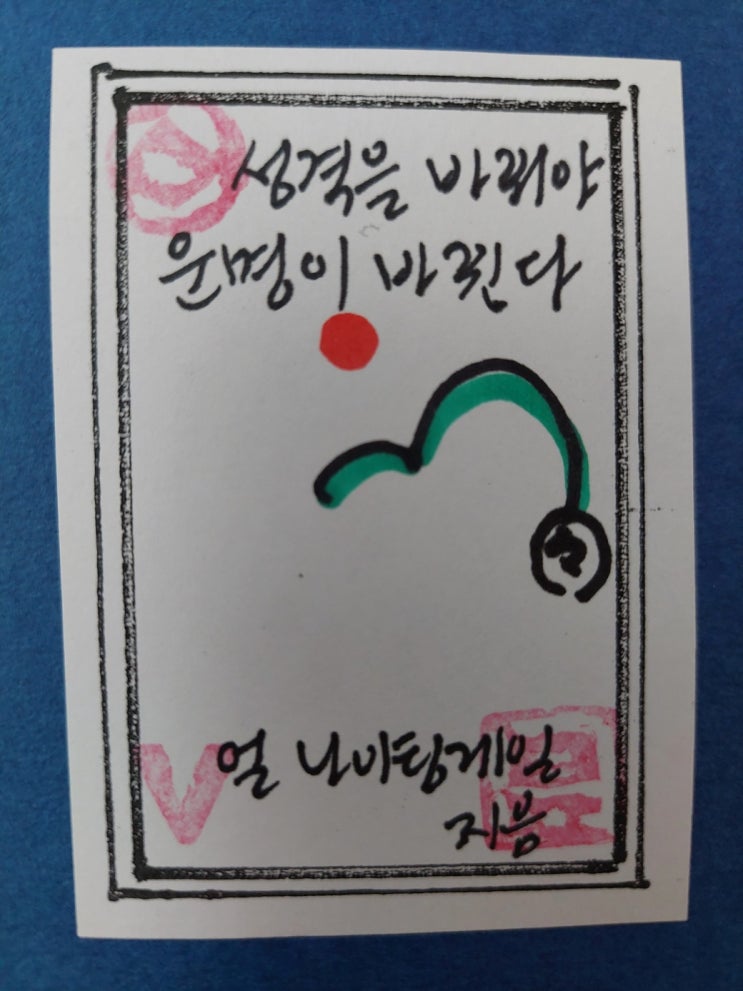 성격을 바꿔야
운명이 바뀐다
얼 나이팅게일
지음